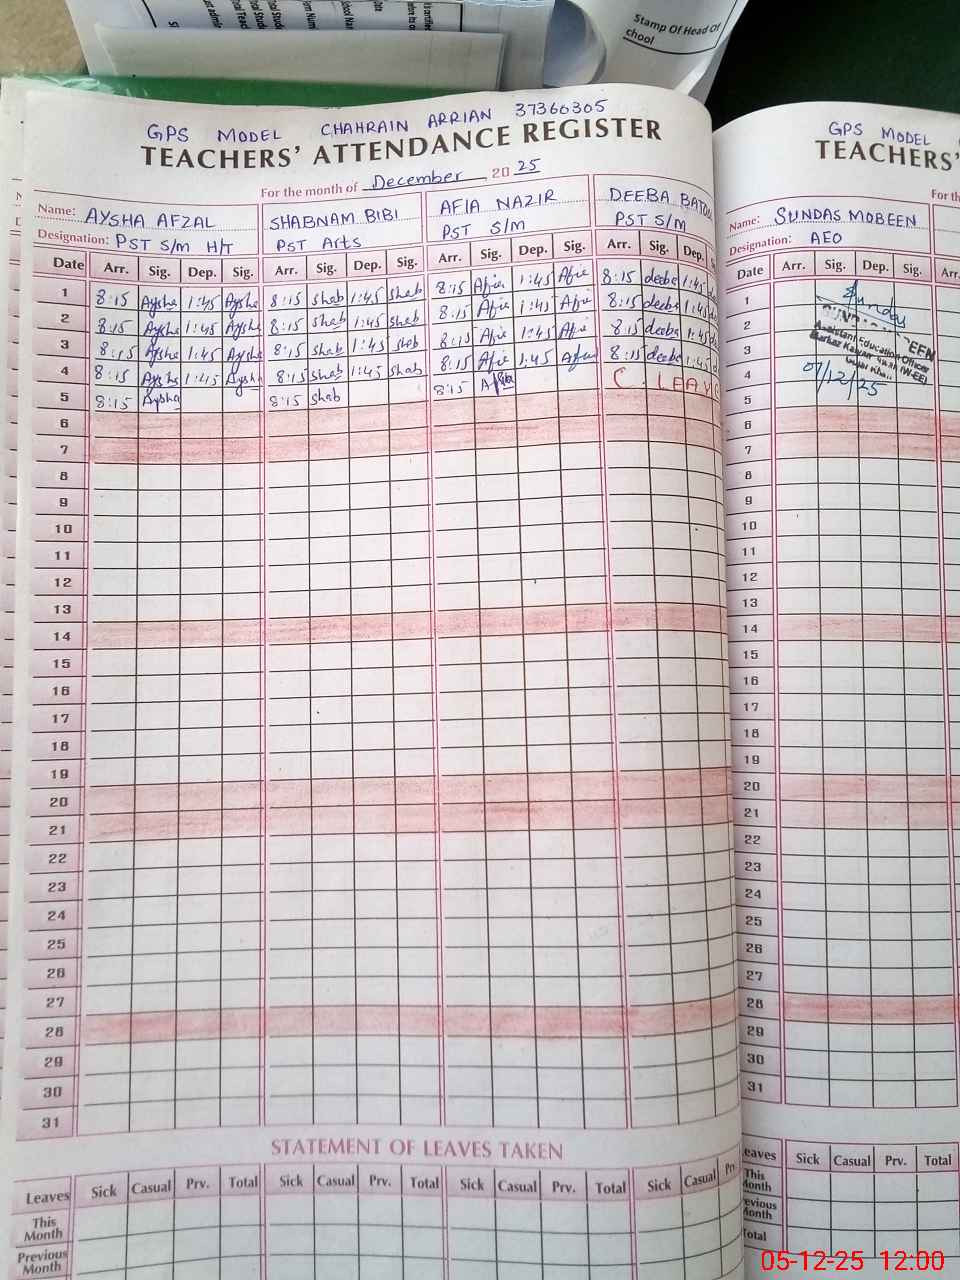 Stamp Of Head Of
chool
GPS MODEL CHAHRAIN ARRIAN 37360305
TEACHERS' ATTENDANCE REGISTER
For the month of December 20 25
Name: AYSHA AFZAL SHABNAM BIBI AFIA NAZIR DEEBA BATOO
Designation: PST S/m H/T PST Arts PST S/m PST S/m
Date Arr. Sig. Dep. Sig. Arr. Sig. Dep. Sig. Arr. Sig. Dep. Sig. Arr. Sig. Dep.
1 8:15 Aysha 1:45 Aysha 8:15 shab 1:45 shab 8:15 Afia 1:45 Afia 8:15 deeba 1:45
2 8:15 Aysha 1:45 Aysha 8:15 shab 1:45 shab 8:15 Afia 1:45 Afia 8:15 deeba 1:45
3 8:15 Aysha 1:45 Aysha 8:15 shab 1:45 shab 8:15 Afia 1:45 Afia 8:15 deeba 1:45
4 8:15 Aysha 1:45 Aysha 8:15 shab 1:45 shab 8:15 Afia 1:45 Afia 8:15 deeba 1:45
5 8:15 Aysha 8:15 shab 8:15 Afia C. LEAVE
6
7
8
9
10
11
12
13
14
15
16
17
18
19
20
21
22
23
24
25
26
27
28
29
30
31
STATEMENT OF LEAVES TAKEN
Leaves Sick Casual Prv. Total Sick Casual Prv. Total Sick Casual Prv. Total Sick Casual Prv
This Month
Previous Month
GPS MODEL
TEACHERS'
For th
Name: SUNDAS MOBEEN
Designation: AEO
Date Arr. Sig. Dep. Sig. Arr.
1
2
3
4
5
Sunday
EEN
Assistant Education Officer
(W-EE)
07/12/25
6
7
8
9
10
11
12
13
14
15
16
17
18
19
20
21
22
23
24
25
26
27
28
29
30
31
eaves Sick Casual Prv. Total
This Month
evious Month
Total
05-12-25 12:00